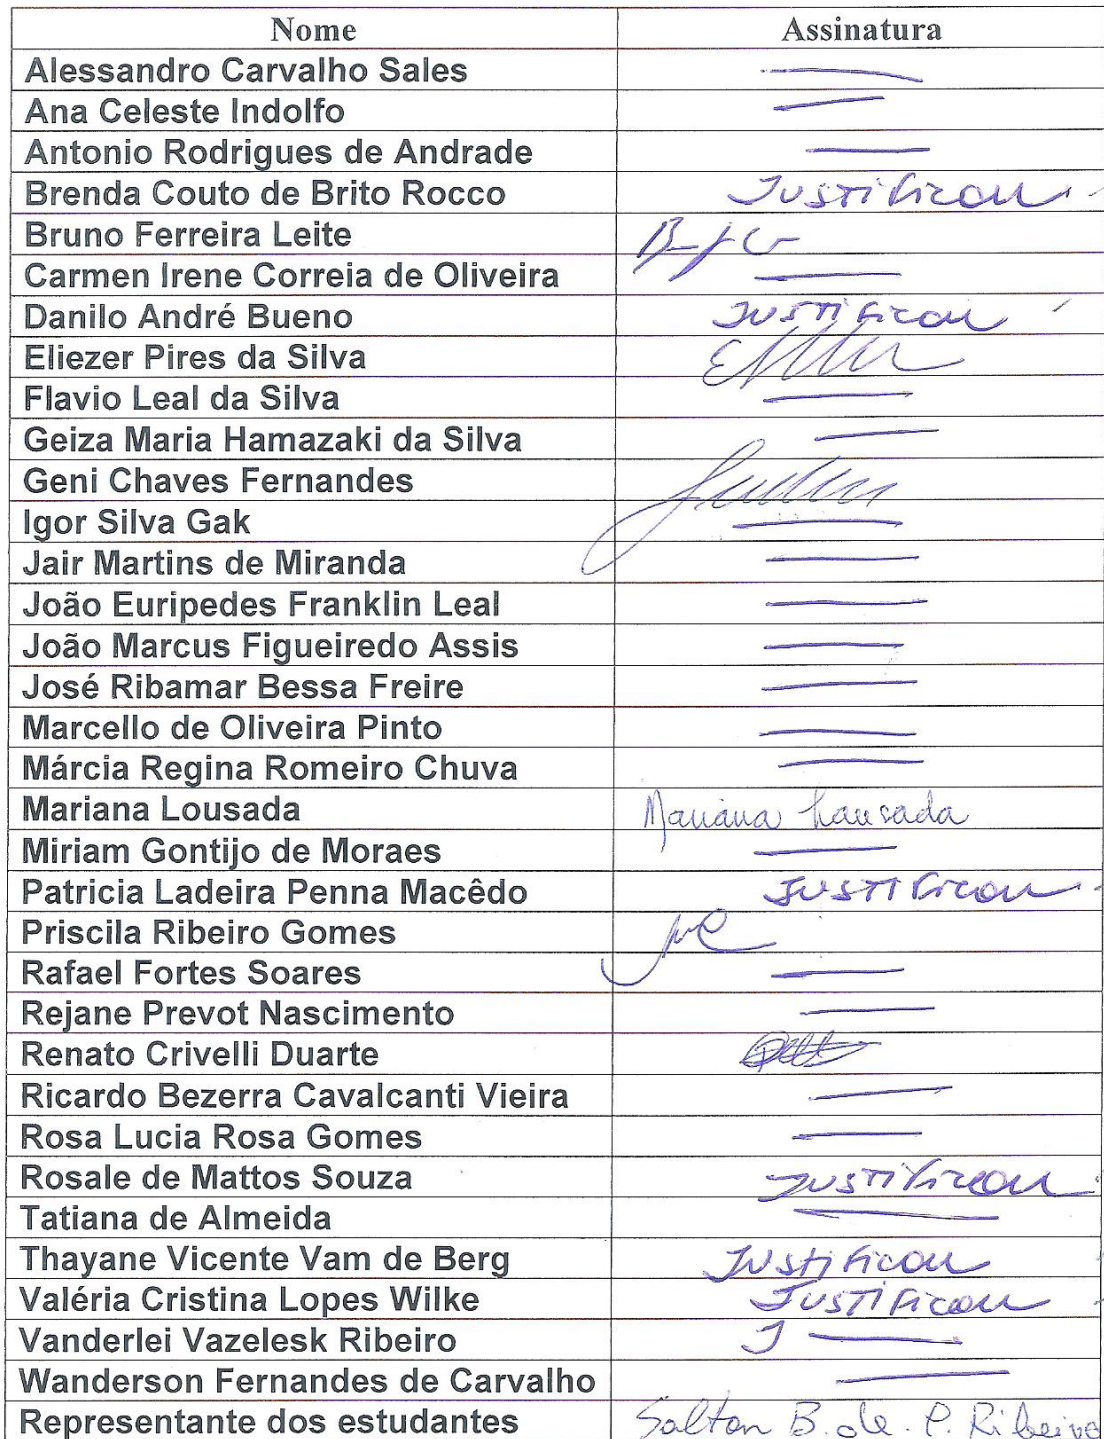 Nome Assinatura
Alessandro Carvalho Sales
Ana Celeste Indolfo
Antonio Rodrigues de Andrade
Brenda Couto de Brito Rocco Justificou
Bruno Ferreira Leite
Carmen Irene Correia de Oliveira
Danilo André Bueno Justificou
Eliezer Pires da Silva
Flavio Leal da Silva
Geiza Maria Hamazaki da Silva
Geni Chaves Fernandes
Igor Silva Gak
Jair Martins de Miranda
João Euripedes Franklin Leal
João Marcus Figueiredo Assis
José Ribamar Bessa Freire
Marcello de Oliveira Pinto
Márcia Regina Romeiro Chuva
Mariana Lousada Mariana Lousada
Miriam Gontijo de Moraes
Patricia Ladeira Penna Macêdo Justificou
Priscila Ribeiro Gomes
Rafael Fortes Soares
Rejane Prevot Nascimento
Renato Crivelli Duarte
Ricardo Bezerra Cavalcanti Vieira
Rosa Lucia Rosa Gomes
Rosale de Mattos Souza Justificou
Tatiana de Almeida
Thayane Vicente Vam de Berg Justificou
Valéria Cristina Lopes Wilke Justificou
Vanderlei Vazelesk Ribeiro J
Wanderson Fernandes de Carvalho
Representante dos estudantes B. de. P. Ribeiro